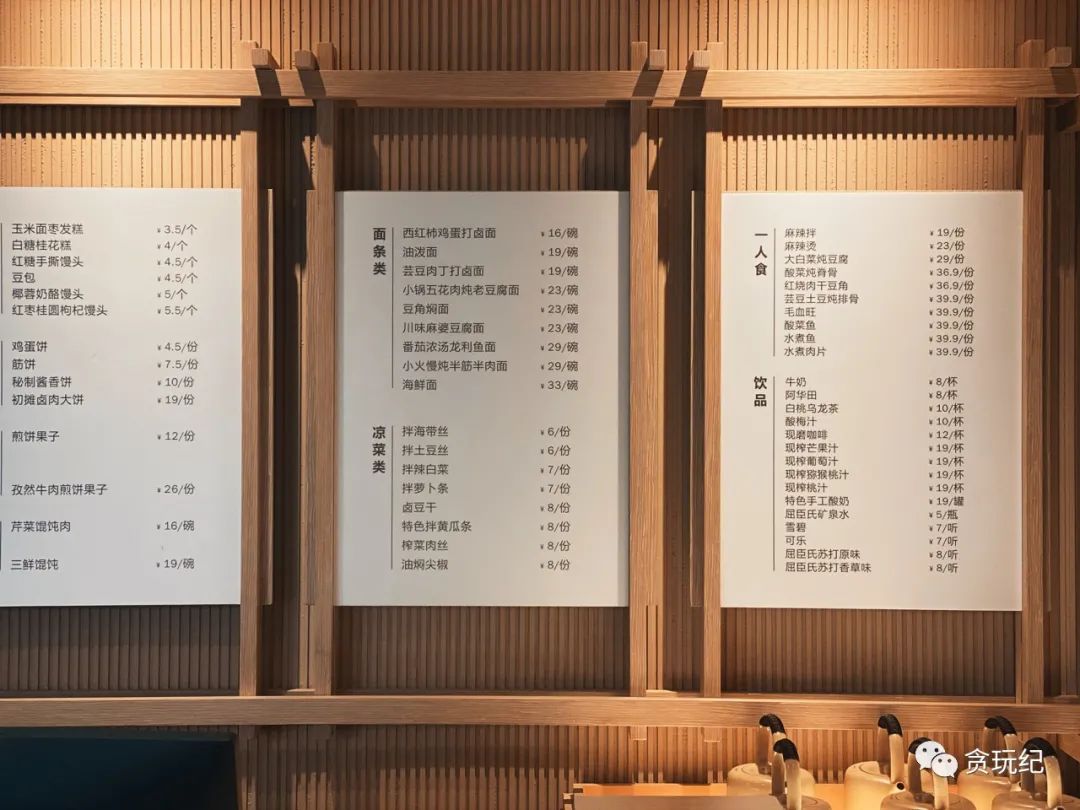 玉米面枣发糕 ¥ 3.5/个
白糖桂花糕 ¥ 4/个
红糖手撕馒头 ¥ 4.5/个
豆包 ¥ 4.5/个
椰蓉奶酪馒头 ¥ 5/个
红枣桂圆枸杞馒头 ¥ 5.5/个
鸡蛋饼 ¥ 4.5/份
筋饼 ¥ 7.5/份
秘制酱香饼 ¥ 10/份
初摊卤肉大饼 ¥ 19/份
煎饼果子 ¥ 12/份
孜然牛肉煎饼果子 ¥ 26/份
芹菜馄饨肉 ¥ 16/碗
三鲜馄饨 ¥ 19/碗
面条类
西红柿鸡蛋打卤面 ¥ 16/碗
油泼面 ¥ 19/碗
芸豆肉丁打卤面 ¥ 19/碗
小锅五花肉炖老豆腐面 ¥ 23/碗
豆角焖面 ¥ 23/碗
川味麻婆豆腐面 ¥ 23/碗
番茄浓汤龙利鱼面 ¥ 29/碗
小火慢炖半筋半肉面 ¥ 29/碗
海鲜面 ¥ 33/碗
凉菜类
拌海带丝 ¥ 6/份
拌土豆丝 ¥ 6/份
拌辣白菜 ¥ 7/份
拌萝卜条 ¥ 7/份
卤豆干 ¥ 8/份
特色拌黄瓜条 ¥ 8/份
榨菜肉丝 ¥ 8/份
油焖尖椒 ¥ 8/份
一人食
麻辣拌 ¥ 19/份
麻辣烫 ¥ 23/份
大白菜炖豆腐 ¥ 29/份
酸菜炖脊骨 ¥ 36.9/份
红烧肉干豆角 ¥ 36.9/份
芸豆土豆炖排骨 ¥ 39.9/份
毛血旺 ¥ 39.9/份
酸菜鱼 ¥ 39.9/份
水煮鱼 ¥ 39.9/份
水煮肉片 ¥ 39.9/份
饮品
牛奶 ¥ 8/杯
阿华田 ¥ 8/杯
白桃乌龙茶 ¥ 10/杯
酸梅汁 ¥ 10/杯
现磨咖啡 ¥ 12/杯
现榨芒果汁 ¥ 19/杯
现榨葡萄汁 ¥ 19/杯
现榨猕猴桃汁 ¥ 19/杯
现榨桃汁 ¥ 19/杯
特色手工酸奶 ¥ 19/罐
屈臣氏矿泉水 ¥ 5/瓶
雪碧 ¥ 7/听
可乐 ¥ 7/听
屈臣氏苏打原味 ¥ 8/听
屈臣氏苏打香草味 ¥ 8/听
贪玩纪